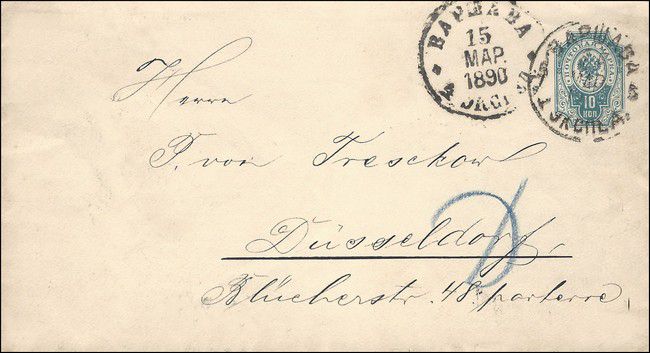 ВАРШАВА
15
МАР.
1890
ВАРШАВА
ПОЧТОВАЯ МАРКА
10
КОП
Herrn
T. von Treskow
Düsseldorf,
Blücherstr. 48. parterre